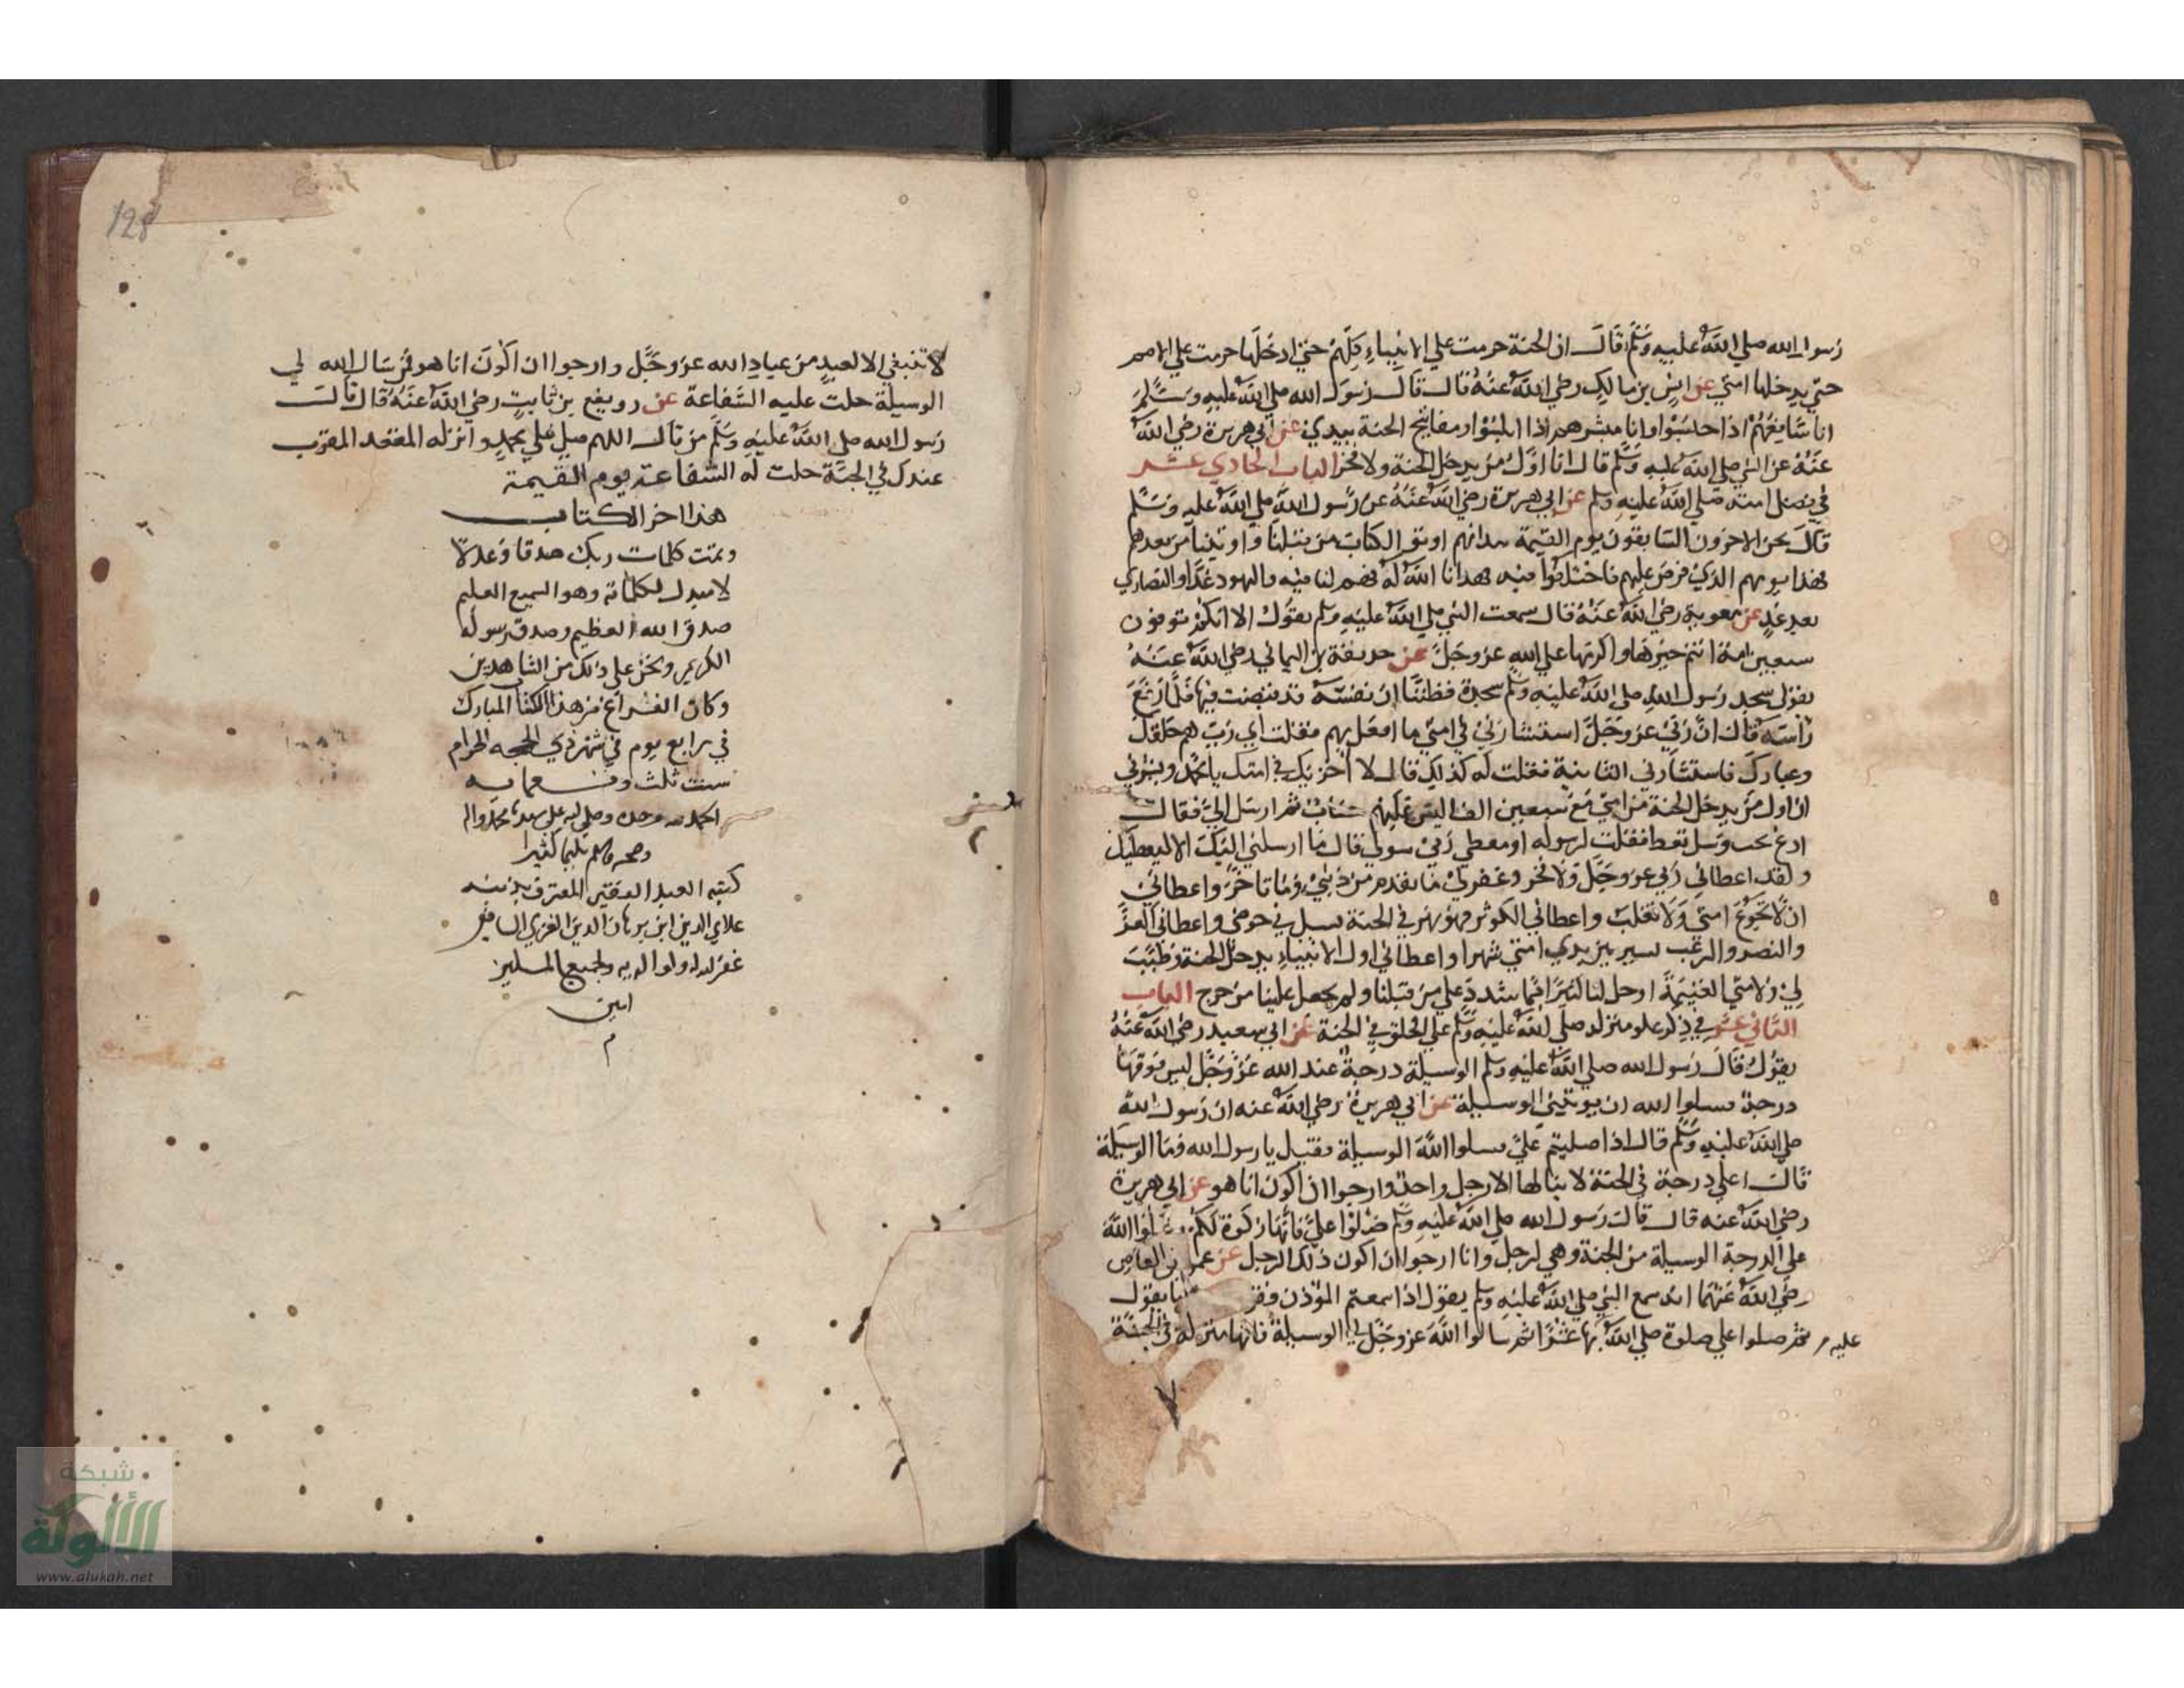 رسول الله صلي الله عليه وسلم قال ان الجنة حرمت علي الانبياء كلهم حتي ادخلها حرمت علي الامم
حتي يدخلها امتي عن انس بن مالك رضي الله عنه قال قال رسول الله صلي الله عليه وسلم
انا شافعهم اذا حبسوا وانا مبشرهم اذا ابلسوا ومفاتيح الجنة بيدي عن ابي هريرة رضي الله
عنه عن النبي صلي الله عليه وسلم قال انا اول من يدخل الجنة ولا فخر الباب الحادي عشر
في فضل امته صلي الله عليه وسلم عن ابي هريرة رضي الله عنه عن رسول الله صلي الله عليه وسلم
قال نحن الاخرون السابقون يوم القيمة بيد انهم اوتوا الكتاب من قبلنا واوتينا من بعدهم
فهذا يومهم الذي فرض عليهم فاختلفوا فيه فهدانا الله له فهم لنا فيه فاليهود غدا والنصاري
بعد غد عن معوية رضي الله عنه قال سمعت النبي صلي الله عليه وسلم يقول الا انكم توفون
سبعين امة انتم خيرها واكرمها علي الله عز وجل عن حذيفة بن اليماني رضي الله عنه
يقول سجد رسول الله صلي الله عليه وسلم سجدة فظننا ان نفسه قد قبضت فيها فلما رفع
راسه قال ان ربي عز وجل استشارني في امتي ما افعل بهم فقلت اي رب هم خلقك
وعبادك فاستشارني الثانية فقلت له كذلك قال لا اخزيك في امتك يا محمد وبشرني
ان اول من يدخل الجنة من امتي مع سبعين الف ليس عليهم حساب ثم ارسل الي فقال
ادع تجب وسل تعط فقلت لرسوله او معطي ربي سولي قال ما ارسلني اليك الا ليعطيك
ولقد اعطاني ربي عز وجل ولا فخر وغفر لي ما تقدم من ذنبي وما تاخر واعطاني
ان لا تجوع امتي ولا تغلب واعطاني الكوثر فهو نهر في الجنة يسيل في حوضي واعطاني العز
والنصر والرعب يسير بين يدي امتي شهرا واعطاني اول الانبياء يدخل الجنة وطيبت
لي ولامتي الغنيمة واحل لنا كثيرا مما شدد علي من قبلنا ولم يجعل علينا من حرج الباب
الثاني عشر في ذكر علو منزله صلي الله عليه وسلم علي الخلق في الجنة عن ابي سعيد رضي الله عنه
يقول قال رسول الله صلي الله عليه وسلم الوسيلة درجة عند الله عز وجل ليس فوقها
درجة فسلوا الله ان يوتيني الوسيلة عن ابي هريرة رضي الله عنه ان رسول الله
صلي الله عليه وسلم قال اذا صليتم علي فسلوا الله الوسيلة فقيل يا رسول الله وما الوسيلة
قال اعلي درجة في الجنة لا ينالها الا رجل واحد وارجوا ان اكون انا هو عن ابي هريرة
رضي الله عنه قال قال رسول الله صلي الله عليه وسلم صلوا علي فانها زكوة لكم الله
علي الدرجة الوسيلة من الجنة وهي لرجل وانا ارجوا ان اكون ذلك الرجل عن بن العاص
رضي الله عنهما انه سمع النبي صلي الله عليه وسلم يقول اذا سمعتم الموذن يقول
ثم صلوا علي صلوة صلي الله بها عشرا ثم سالوا الله عز وجل لي الوسيلة فانها منزلة في الجنة
عليه
لا تنبغي الا لعبد من عباد الله عز وجل وارجوا ان اكون انا هو فمن سال الله لي
الوسيلة حلت عليه الشفاعة عن رويفع بن ثابت رضي الله عنه قال قال
رسول الله صلي الله عليه وسلم من قال اللهم صل علي محمد وانزله المقعد المقرب
عندك في الجنة حلت له الشفاعة يوم القيمة
هذا اخر الكتاب
وتمت كلمات ربك صدقا وعدلا
لا مبدل لكلماته وهو السميع العليم
صدق الله العظيم وصدق رسوله
الكريم ونحن علي ذلك من الشاهدين
وكان الفراغ من هذا الكتاب المبارك
في رابع يوم في شهر ذي الحجه الحرام
سنت ثلث
الحمد لله وحده وصلي الله علي سيدنا محمد واله
وصحبه وسلم تسليما كثيرا
كتبه العبد الفقير المعترف بذنبه
علاي الدين ابن برهان الدين الغزي الشافعي
غفر الله له ولوالديه ولجميع المسلمين
امين
م
128
شبكة
الألوكة
www.alukah.net